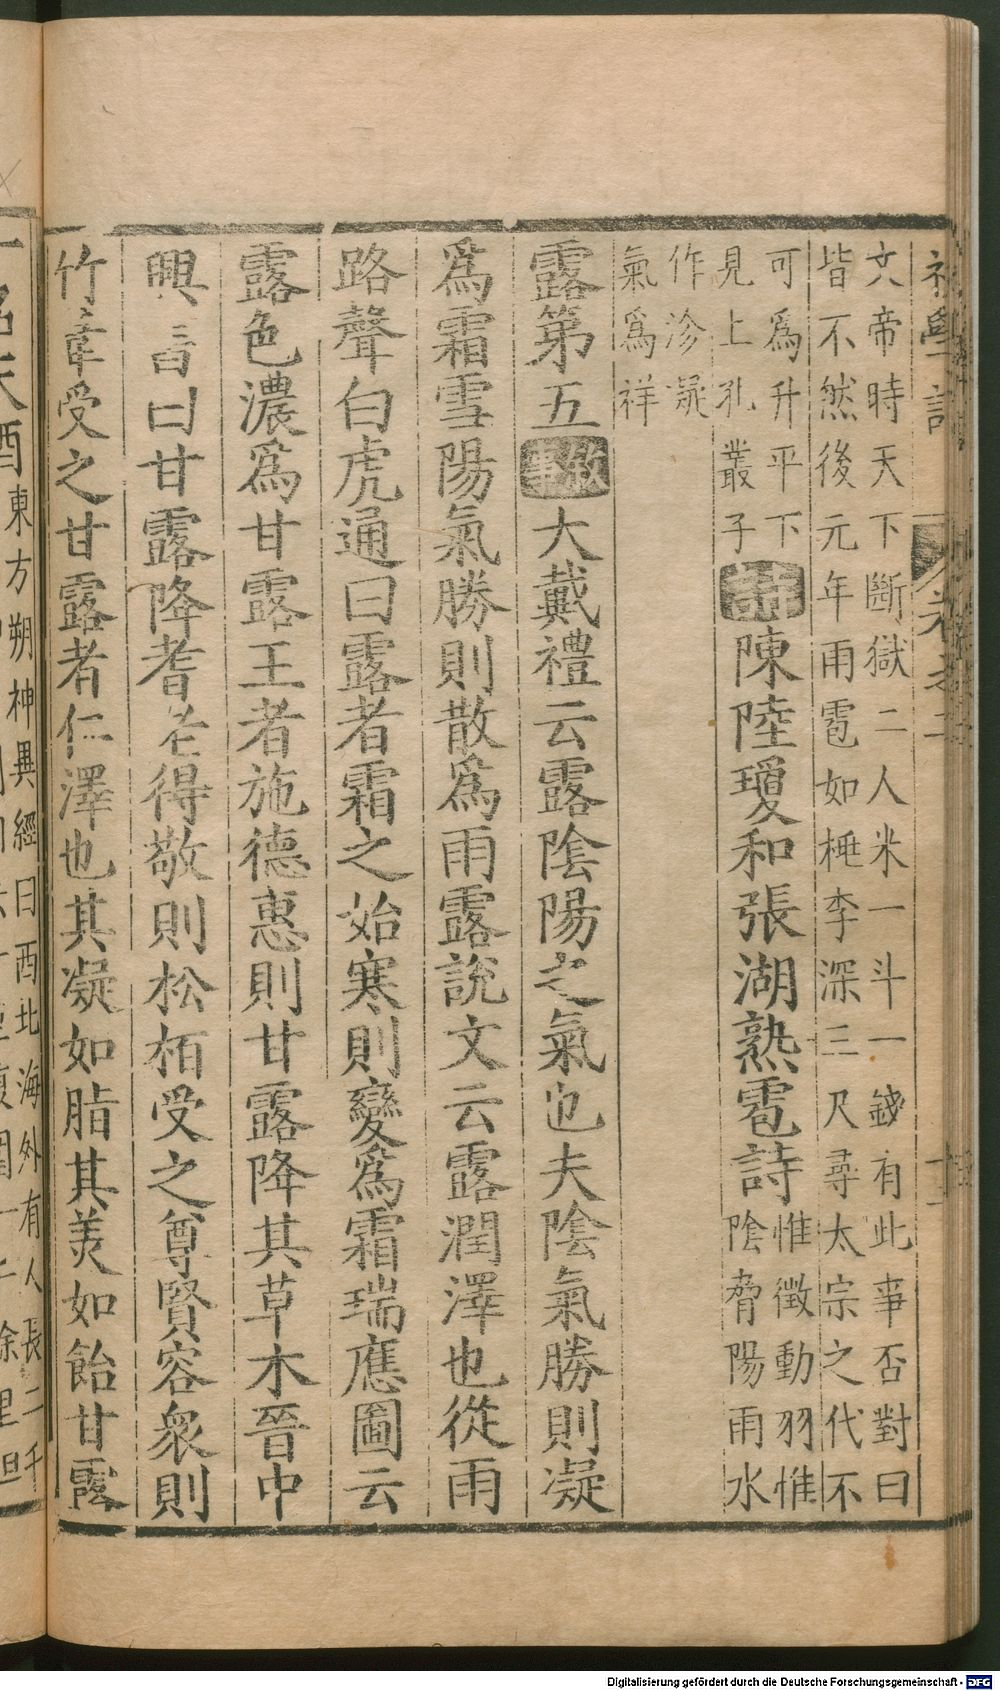 初學記 卷之二 十一
文帝時天下斷獄二人米一斗一錢有此事否對曰
皆不然後元年雨雹如桃李深三尺尋太宗之代不
可爲升平下
見上孔叢子
詩
陳陸瓊和張湖熟雹詩
惟徵動羽惟
陰脅陽雨水
作沴凝
氣爲祥
露第五
敘事
大戴禮云露陰陽之氣也夫陰氣勝則凝
爲霜雪陽氣勝則散爲雨露說文云露潤澤也從雨
路聲白虎通曰露者霜之始寒則變爲霜瑞應圖云
露色濃爲甘露王者施德惠則甘露降其草木晉中
興書曰甘露降耆老得敬則松栢受之尊賢容衆則
竹葦受之甘露者仁澤也其凝如脂其美如飴甘露
東方朔神異經曰西北海外有人長二千
Digitalisierung gefördert durch die Deutsche Forschungsgemeinschaft - DFG